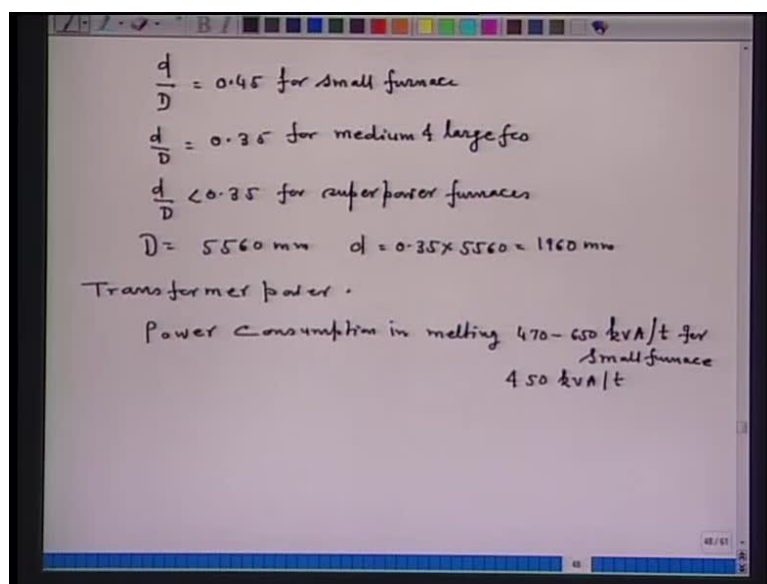 B I
d/D = 0.45 for small furnace
d/D = 0.35 for medium & large fco
d/D <0.35 for superpower furnaces
D= 5560 mm d = 0.35x 5560 = 1960 mm
Transformer power.
Power Consumption in melting 470-650 kVA/t for
Small furnace
450 kVA/t
48/61
48